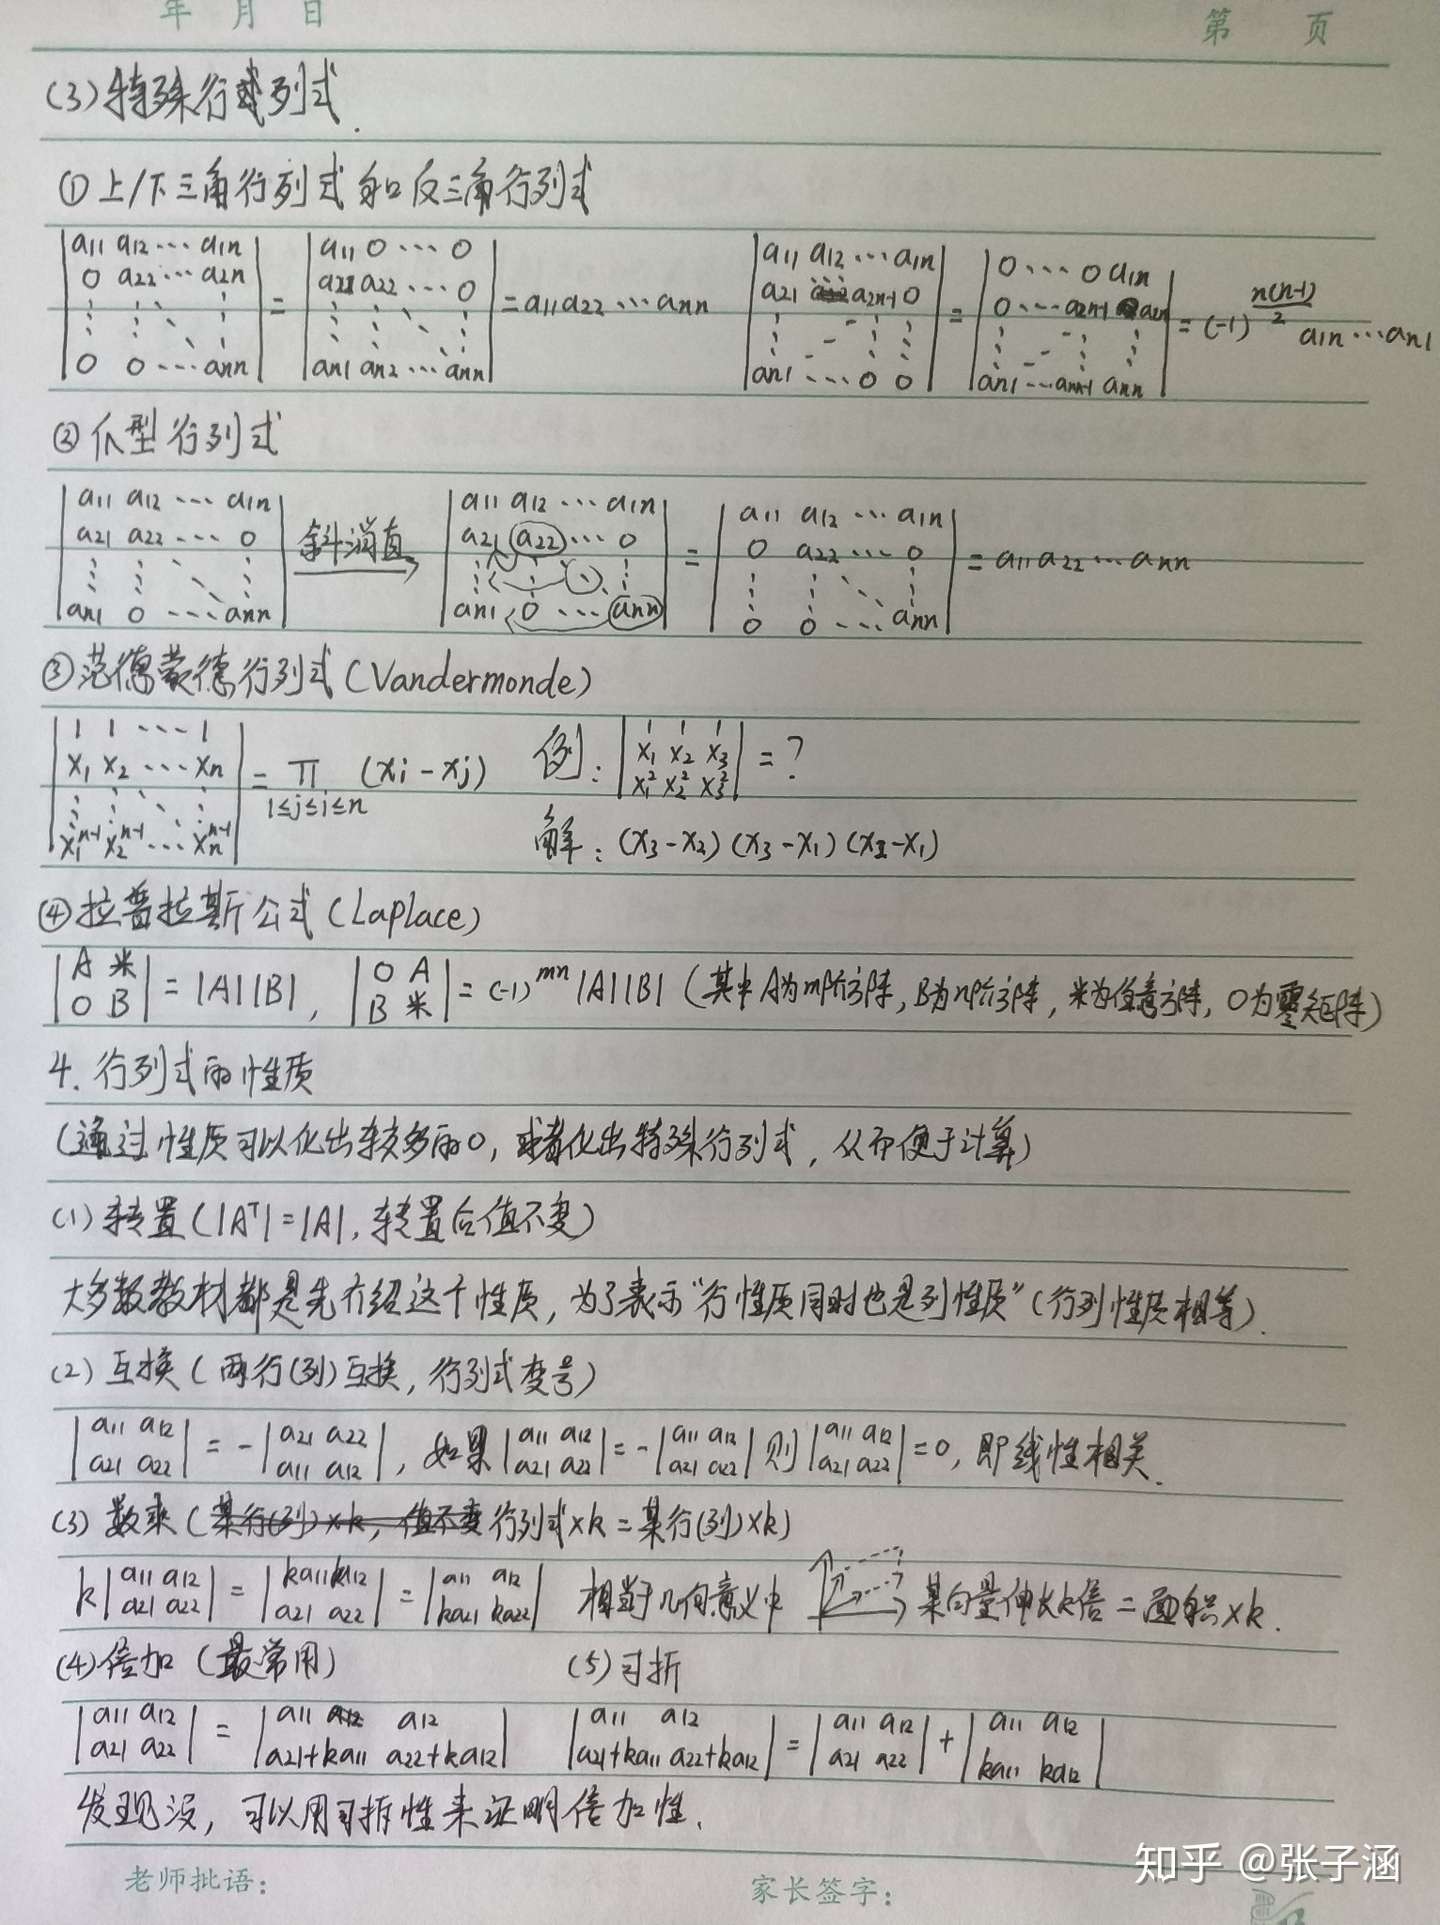 年 月 日 第 页
(3)特殊行列式.
①上/下三角行列式和反三角行列式
|a11 a12 ⋯ a1n; 0 a22 ⋯ a2n; ⋮ ⋮ ⋱ ⋮; 0 0 ⋯ ann| = |a11 0 ⋯ 0; a21 a22 ⋯ 0; ⋮ ⋮ ⋱ ⋮; an1 an2 ⋯ ann| = a11a22⋯ann |a11 a12 ⋯ a1n; a21 a2n-1 0; ⋮ ⋰ ⋮ ⋮; an1 ⋯ 0 0| = |0 ⋯ 0 a1n; 0 ⋯ a2n-1 a2n; ⋮ ⋰ ⋮ ⋮; an1 ⋯ ann-1 ann| = (-1)^(n(n-1)/2) a1n⋯an1
②爪型行列式
|a11 a12 ⋯ a1n; a21 a22 ⋯ 0; ⋮ ⋮ ⋱ ⋮; an1 0 ⋯ ann| 斜消直→ |a11 a12 ⋯ a1n; a21 a22 ⋯ 0; ⋮ ⋮ ⋱ ⋮; an1 0 ⋯ ann| = |a11 a12 ⋯ a1n; 0 a22 ⋯ 0; ⋮ ⋮ ⋱ ⋮; 0 0 ⋯ ann| = a11a22⋯ann
③范德蒙德行列式(Vandermonde)
|1 1 ⋯ 1; x1 x2 ⋯ xn; ⋮ ⋮ ⋱ ⋮; x1^n-1 x2^n-1 ⋯ xn^n-1| = ∏ 1≤j≤i≤n (xi-xj) 例:|1 1 1; x1 x2 x3; x1² x2² x3²| = ?
解:(x3-x2)(x3-x1)(x2-x1)
④拉普拉斯公式(Laplace)
|A 米; O B| = |A||B|, |O A; B 米| = (-1)^mn |A||B| (其中A为m阶方阵,B为n阶方阵,米为任意方阵,O为零矩阵)
4.行列式的性质
(通过性质可以化出较多的0,或者化出特殊行列式,从而便于计算)
(1)转置(|A^T|=|A|,转置后值不变)
大多数教材都是先介绍这个性质,为了表示“行性质同时也是列性质”(行列性质相等).
(2)互换(两行(列)互换,行列式变号)
|a11 a12; a21 a22| = -|a21 a22; a11 a12|, 如果|a11 a12; a21 a22| = -|a11 a12; a21 a22| 则|a11 a12; a21 a22| = 0, 即线性相关.
(3)数乘(某行(列)×k,值不变行列式×k=某行(列)×k)
k|a11 a12; a21 a22| = |ka11 ka12; a21 a22| = |a11 a12; ka21 ka22| 相当于几何意义中 某向量伸长k倍=面积×k.
(4)倍加(最常用) (5)可折
|a11 a12; a21 a22| = |a11 a12; a21+ka11 a22+ka12| |a11 a12; a21+ka11 a22+ka12| = |a11 a12; a21 a22| + |a11 a12; ka11 ka12|
发现没,可以用可拆性来证明倍加性.
老师批语: 家长签字:
知乎 @张子涵